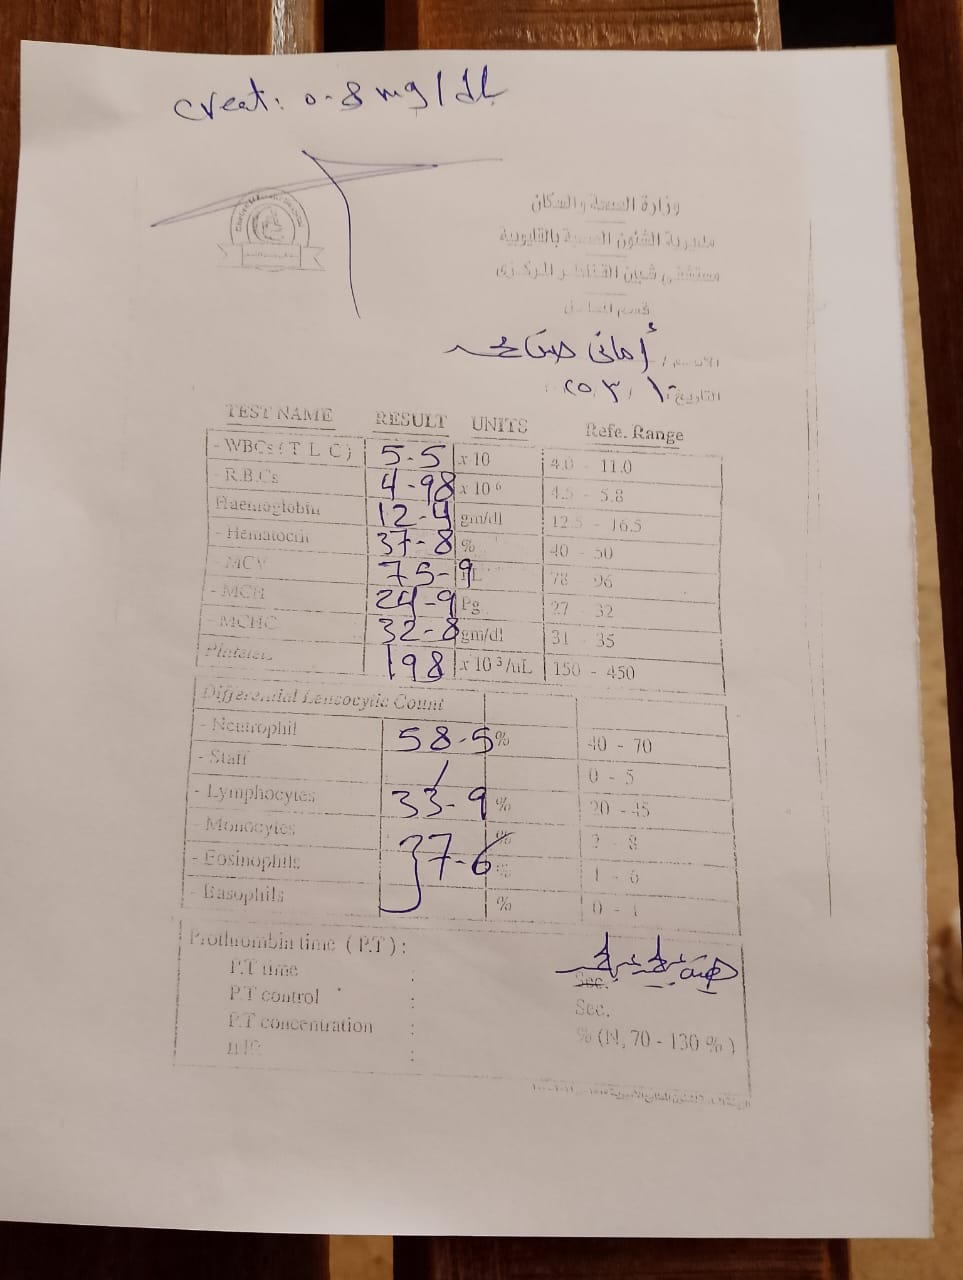 creat: 0.8 mg/dL
وزارة الصحة والسكان
مديرية الشئون الصحية بالقليوبية
مستشفى شبين القناطر المركزى
قسم المعامل
الاسم / أمانى
التاريخ:
TEST NAME RESULT UNITS Refe. Range
- WBCs ( T L C ) 5-5 x 10 4.0 - 11.0
- R.B.Cs 4-98 x 10 6 4.5 - 5.8
Haemoglobin 12-4 gm/dl 12.5 - 16.5
- Hematocrit 37-8 % 40 - 50
- MCV 75-9 fL 78 - 96
- MCH 24-9 Pg 27 - 32
- MCHC 32-8 gm/dl 31 - 35
Platelets 198 x 10 3/uL 150 - 450
Differential Leucocytic Count
- Neutrophil 58-5 % 40 - 70
- Staff / 0 - 5
- Lymphocytes 33-9 % 20 - 45
- Monocytes % 2 - 8
- Eosinophils } 7-6 % 1 - 6
- Basophils % 0 - 1
Prothrombin time ( P.T ) :
P.T time : Sec.
P.T control : Sec.
P.T concentration : % (N, 70 - 130 % )
INR :